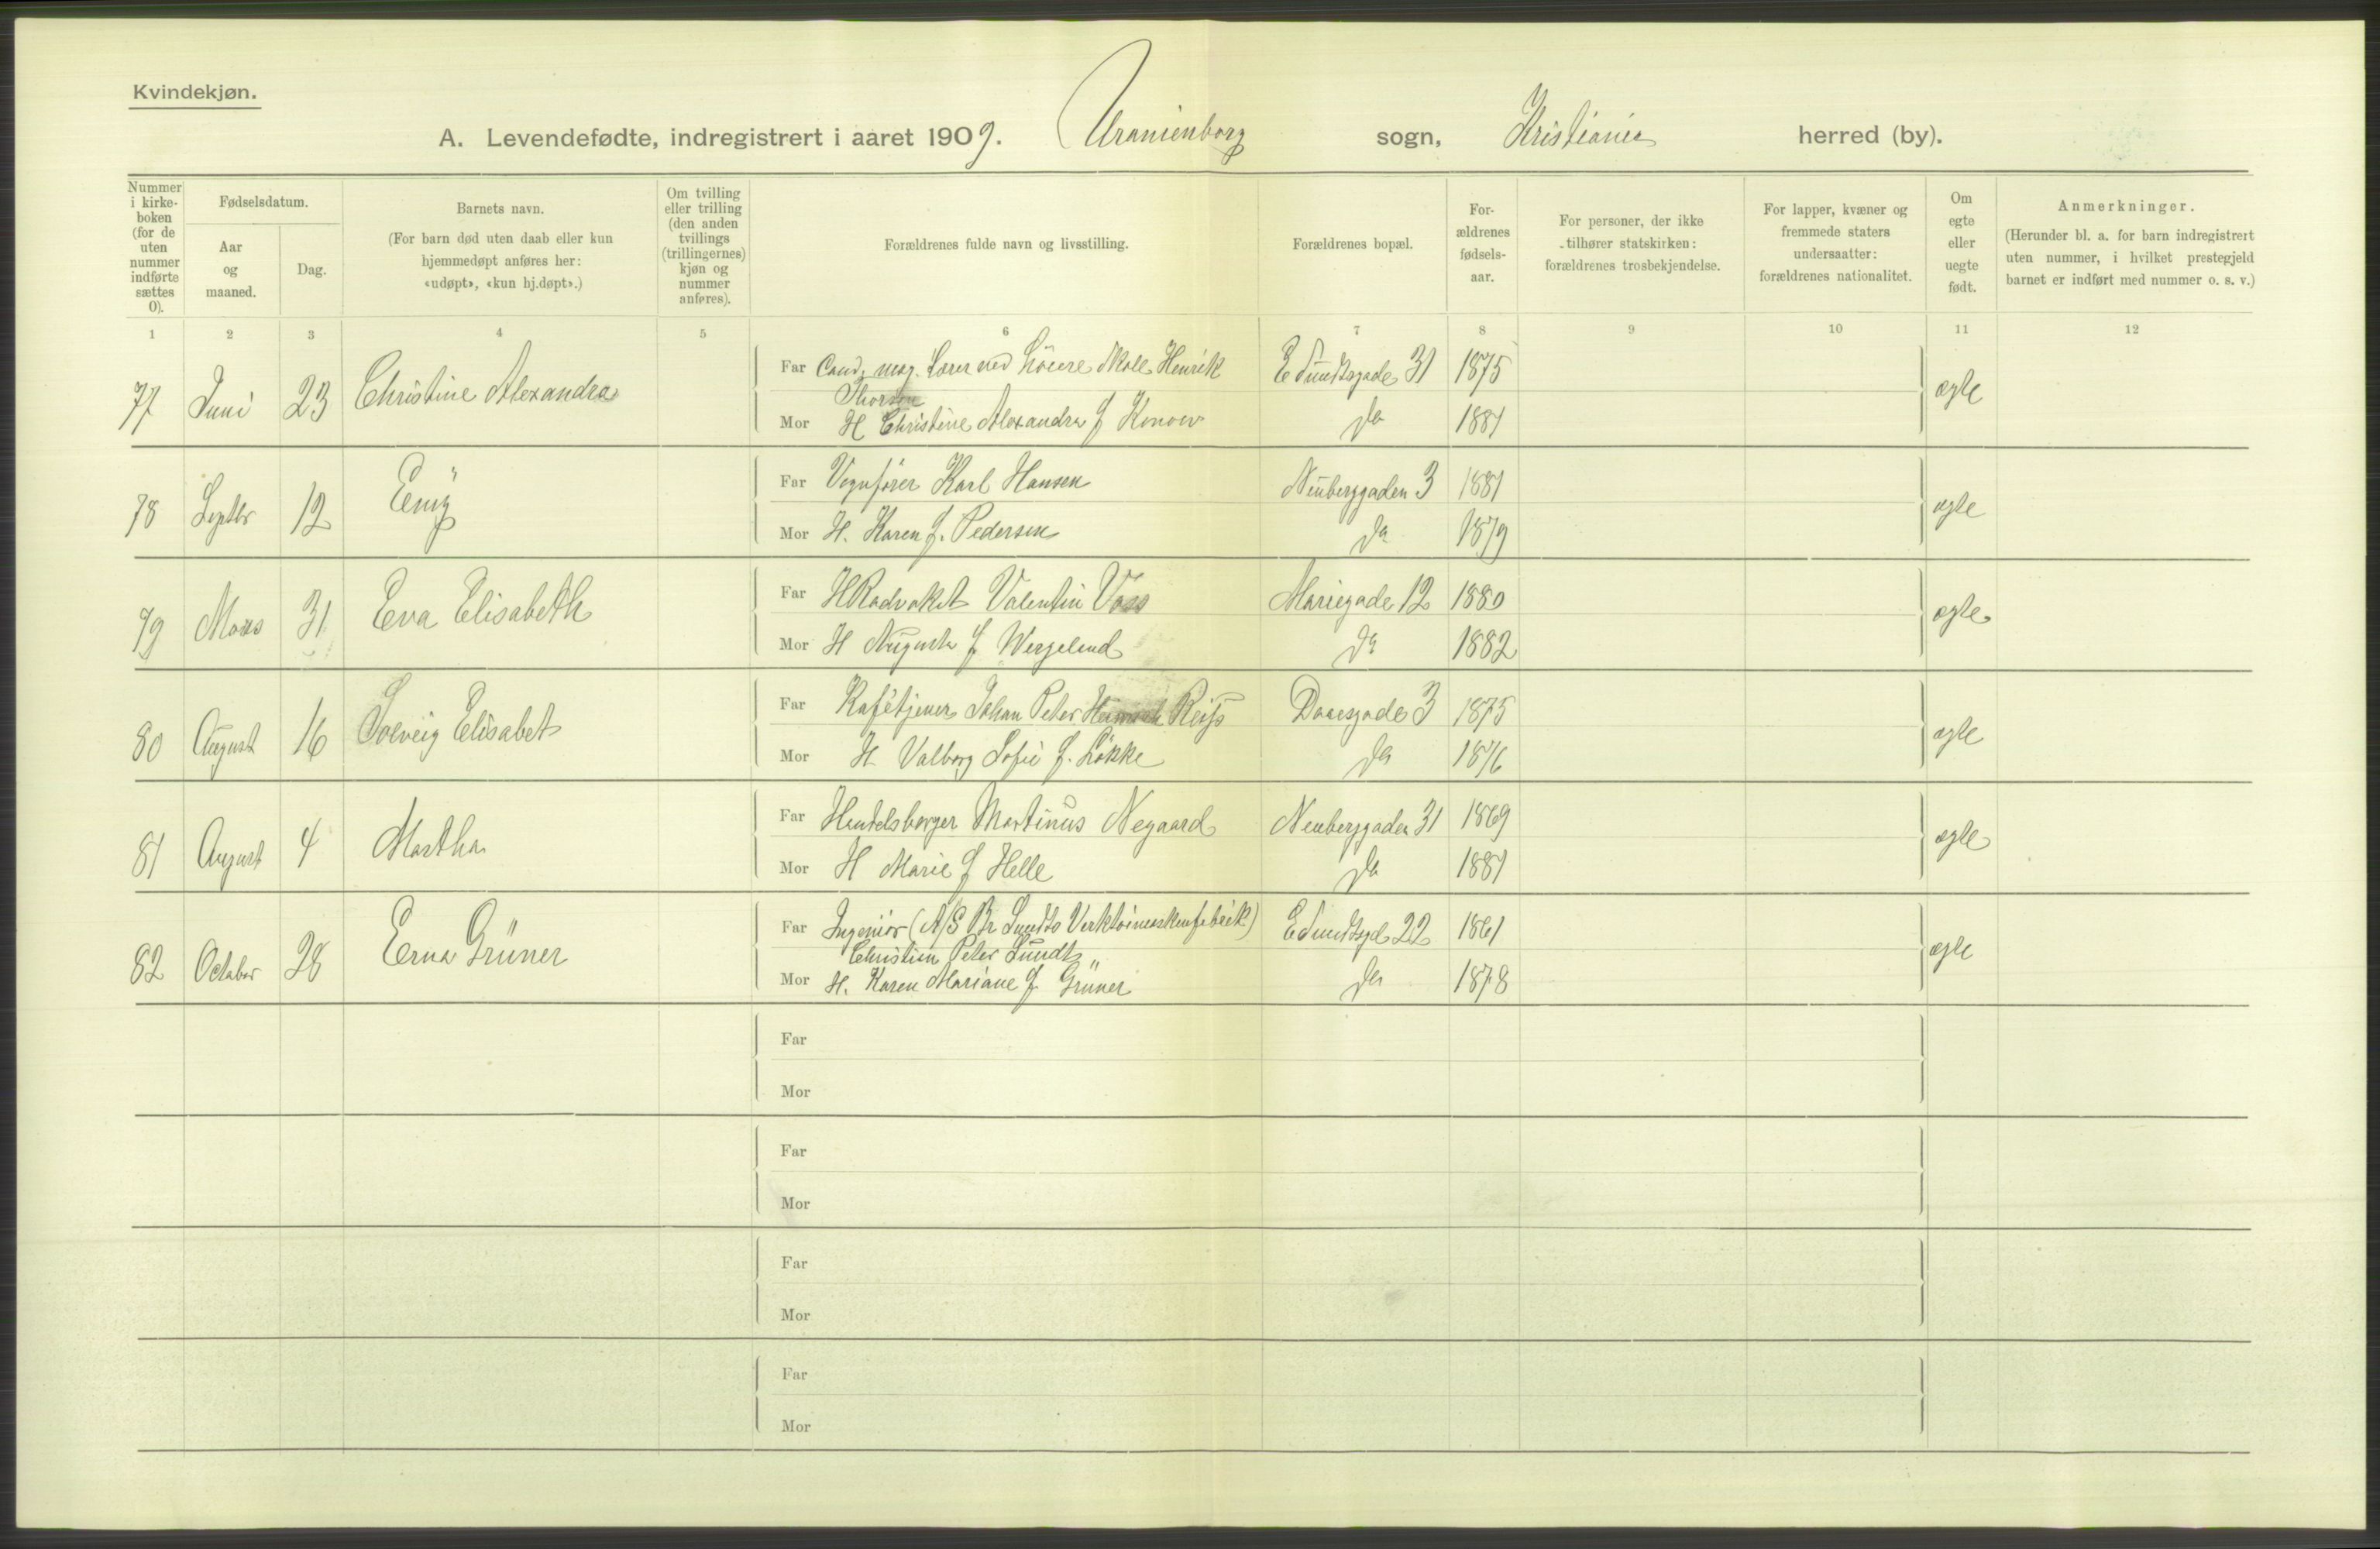 Kvindekjøn.
A. Levendefødte, indregistrert i aaret 1909. Uranienborg sogn, Kristiania herred (by).
Nummer i kirke-boken (for de uten nummer indførte sættes 0).
Fødselsdatum.
Aar og maaned.
Dag.
Barnets navn.
(For barn død uten daab eller kun hjemmedøpt anføres her: «udøpt», «kun hj.døpt».)
Om tvilling eller trilling (den anden tvillings (trillingernes) kjøn og nummer anføres).
Forældrenes fulde navn og livsstilling.
Forældrenes bopæl.
For-ældrenes fødsels-aar.
For personer, der ikke tilhører statskirken: forældrenes trosbekjendelse.
For lapper, kvæner og fremmede staters undersaatter: forældrenes nationalitet.
Om egte eller uegte født.
Anmerkninger.
(Herunder bl. a. for barn indregistrert uten nummer, i hvilket prestegjeld barnet er indført med nummer o. s. v.)
1 2 3 4 5 6 7 8 9 10 11 12
77 Juni 23 Christine Alexandra Far Cand. mag. Lærer ved høiere skole Henrik Thorsen E Sundtsgade 31 1875 ægte
Mor H Christine Alexandra f Konow do 1881
78 Septbr 12 Emÿ Far Vognfører Karl Hansen Neuberggaden 3 1881 ægte
Mor H. Karen f. Pedersen do 1879
79 Mars 31 Eva Elisabeth Far HRadvokat Valentin Voss Mariegade 12 1880 ægte
Mor H Augusta f Wergeland do 1882
80 August 16 Solveig Elisabet Far Kafétjener Johan Peter Heinrich Reiss Daaesgade 3 1875 ægte
Mor H. Valborg Sofie f. Løkke do 1876
81 August 4 Martha Far Handelsborger Martinus Negaard Neuberggaden 31 1869 ægte
Mor H Marie f Helle do 1881
82 October 28 Erna Grüner Far Ingeniør (A/S Br Sundts Verktøimaskinfabrik) Christian Peter Sundt E Sundtsgd 22 1861 ægte
Mor H. Karen Mariane f Grüner do 1878
Far
Mor
Far
Mor
Far
Mor
Far
Mor